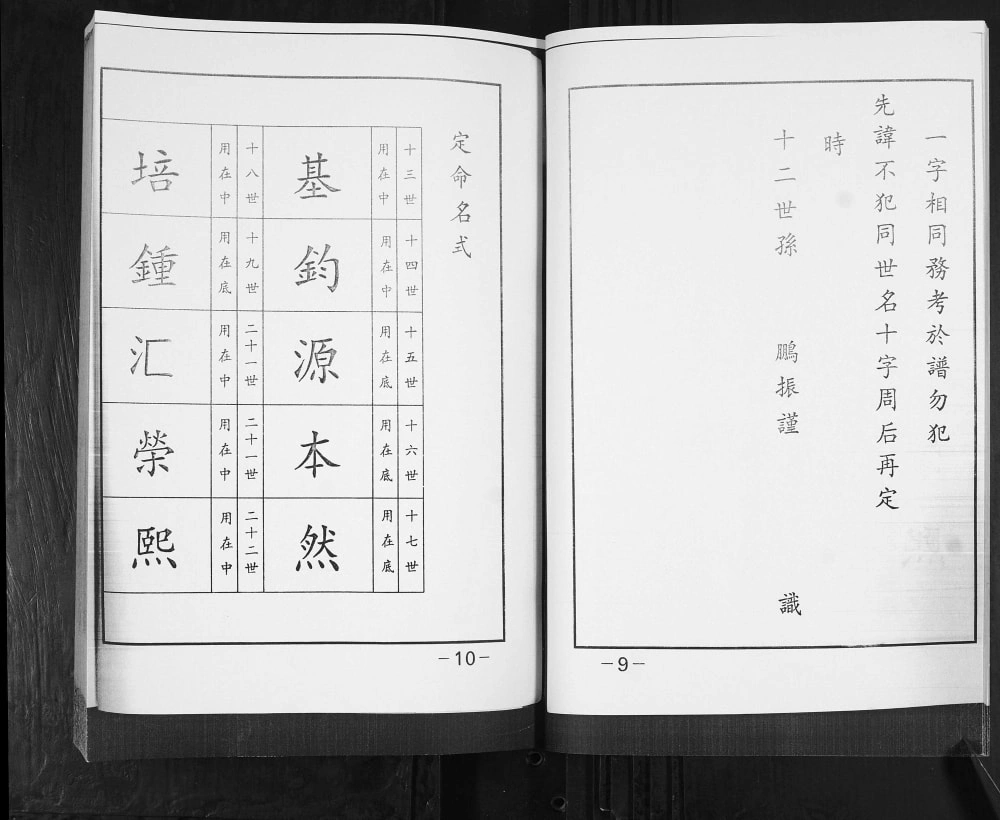 一字相同務考於譜勿犯
先諱不犯同世名十字周后再定
時
十二世孫 鵬振謹 識
-9-
定命名式
十三世 用在中 基
十四世 用在中 鈞
十五世 用在底 源
十六世 用在底 本
十七世 用在底 然
十八世 用在中 培
十九世 用在底 鍾
二十一世 用在中 汇
二十一世 用在中 榮
二十二世 用在中 熙
-10-